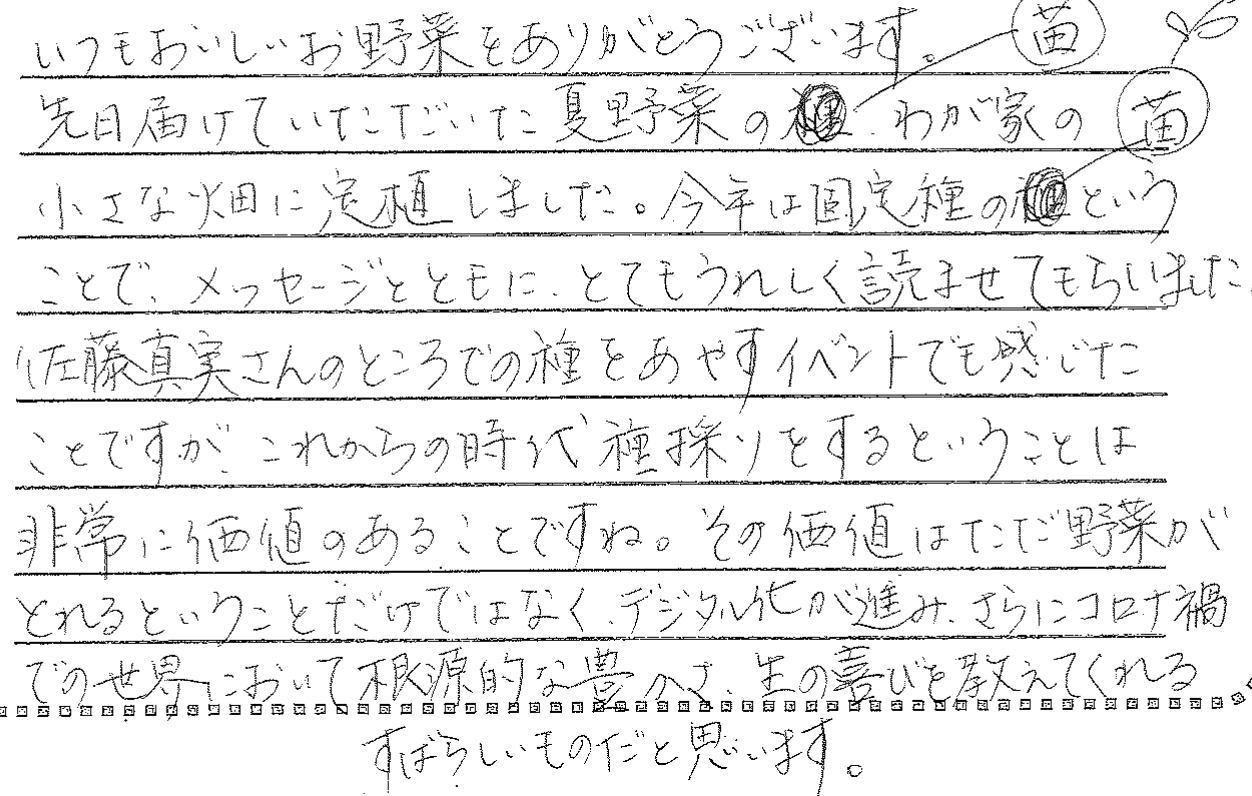 いつもおいしいお野菜をありがとうございます。
先日届けていただいた夏野菜の苗、わが家の
小さな畑に定植しました。今年は固定種の苗という
ことで、メッセージとともに、とてもうれしく読ませてもらいました。
佐藤真実さんのところでの種をあやすイベントでも感じた
ことですが、これからの時代、種採りをするということは
非常に価値のあることですね。その価値はただ野菜が
とれるということだけではなく、デジタル化が進み、さらにコロナ禍
での世界において根源的な豊かさ、生の喜びを教えてくれる
すばらしいものだと思います。